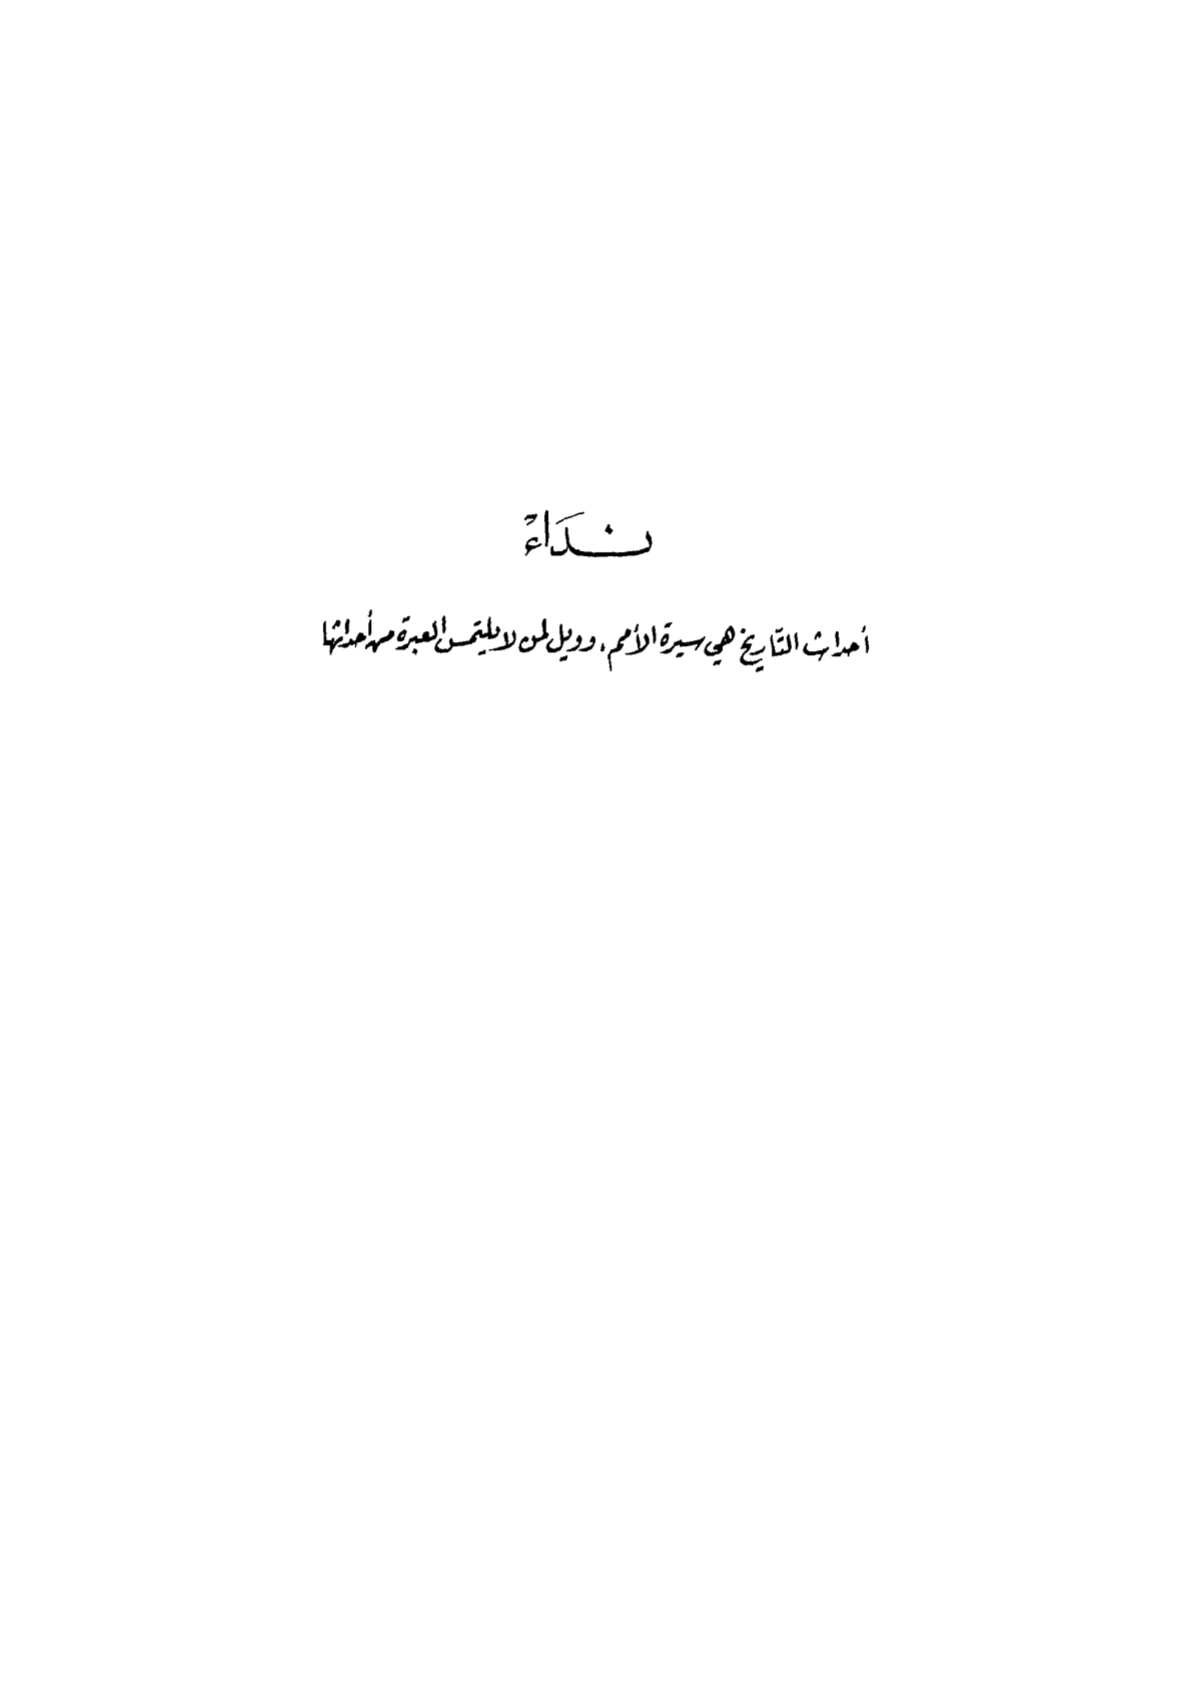 نداء
أحداث التّاريخ هي سيرة الأمم، وويل لمن لا يلتمس العبرة من أحداثها